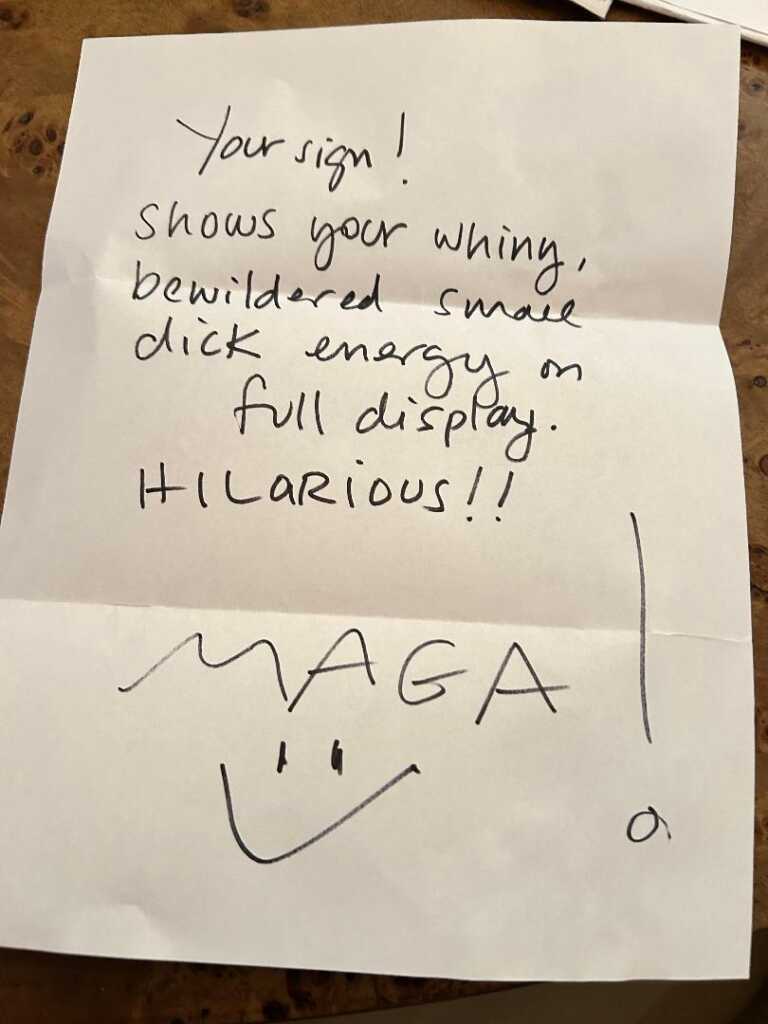 Your sign!
shows your whiny,
bewildered small
dick energy on
full display.
HILARIOUS!!
MAGA!